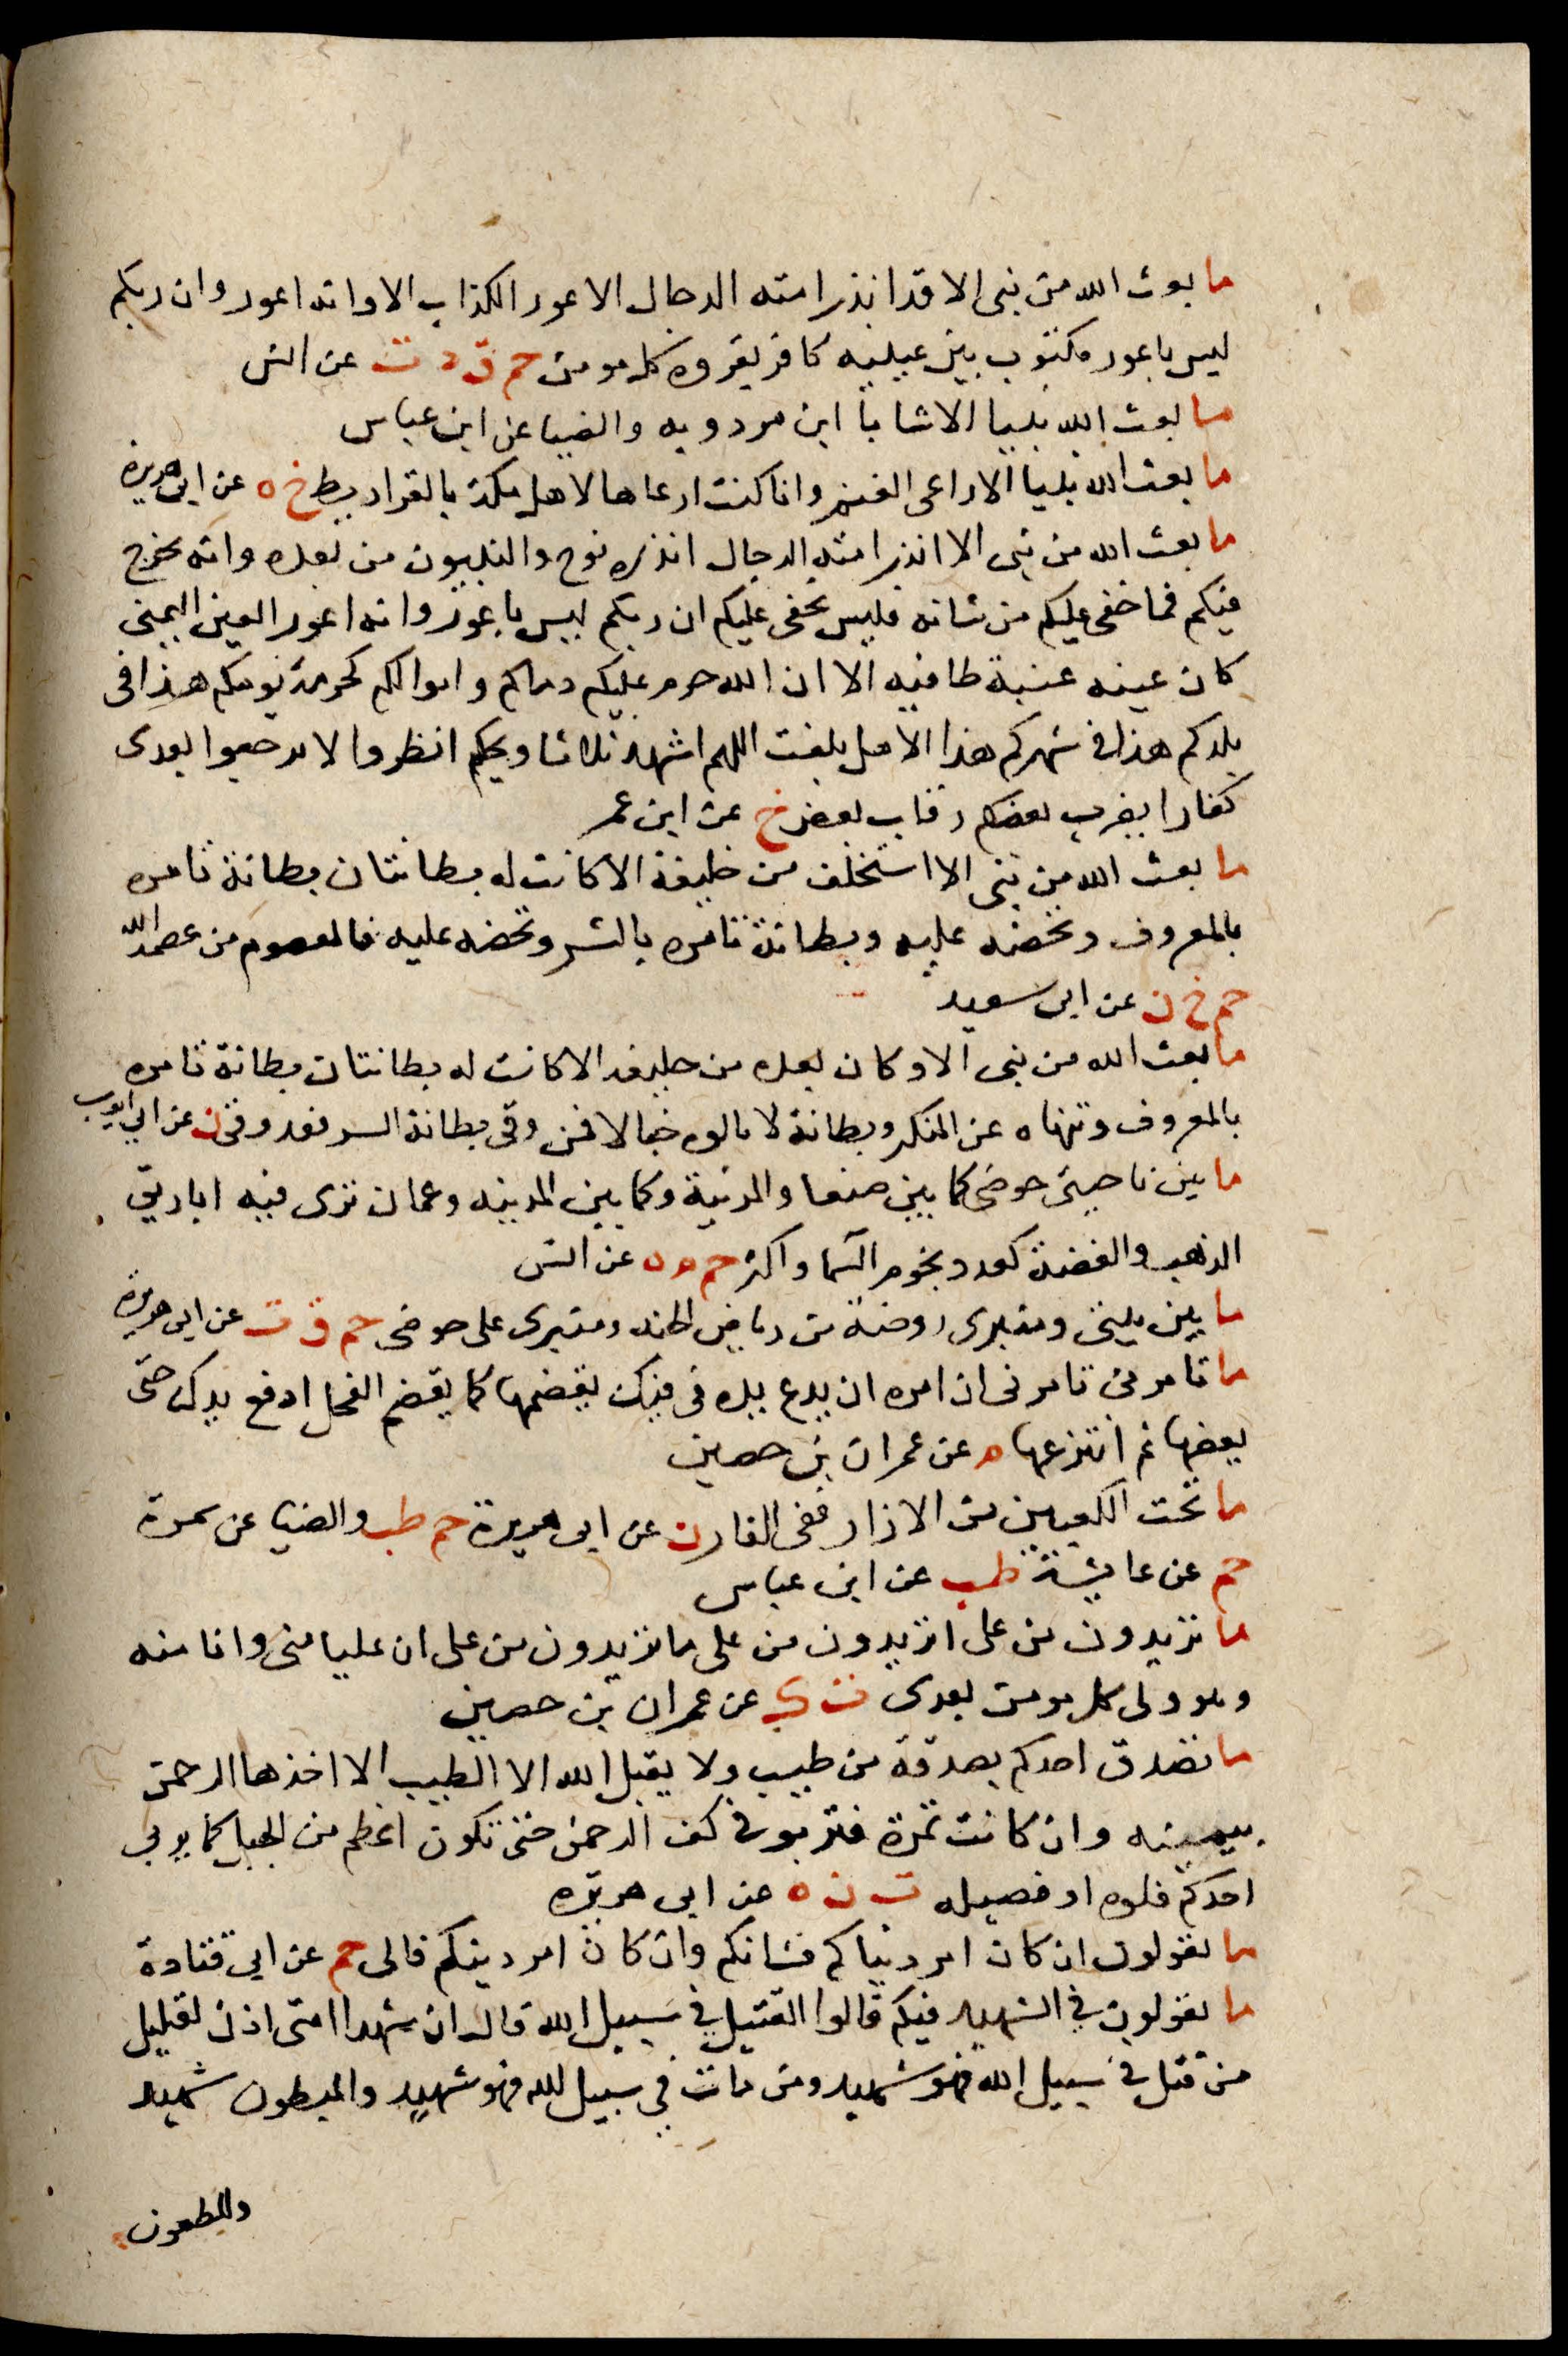 ما بعث الله من نبى الا قد انذر امته الدجال الاعور الكذاب الا وانه اعور وان ربكم
ليس باعور مكتوب بين عينيه كافر يقروه كل مومن حم ق د ت عن انس
ما بعث الله نبيا الا شابا ابن مردويه والضيا عن ابن عباس
ما بعث الله نبيا الا راعى الغنم وانا كنت ارعاها لاهل مكة بالقراريط خ ه عن ابى هريرة
ما بعث الله من نبى الا انذر امته الدجال انذره نوح والنبيون من بعده وانه يخرج
فيكم فما خفى عليكم من شانه فليس يخفى عليكم ان ربكم ليس باعور وانه اعور العين اليمنى
كان عينه عنبة طافيه الا ان الله حرم عليكم دماكم واموالكم كحرمة يومكم هذا فى
بلدكم هذا فى شهركم هذا الا هل بلغت اللهم اشهد ثلاثا ويحكم انظروا لا ترجعوا بعدى
كفارا يضرب بعضكم رقاب بعض خ عن ابن عمر
ما بعث الله من نبى الا استخلف من خليفة الا كانت له بطانتان بطانة تامره
بالمعروف وتحضه عليه وبطانة تامره بالشر وتحضه عليه فالمعصوم من عصمه الله
حم خ ن عن ابى سعيد
ما بعث الله من نبى الا وكان بعده من خليفه الا كانت له بطانتان بطانة تامره
بالمعروف وتنهاه عن المنكر وبطانة لا تالوه خبالا فمن وقى بطانة السر فقد وقى ن عن ابي ايوب
ما بين ناحيتى حوضى كما بين صنعا والمدنية وكما بين المدينه وعمان ترى فيه اباريق
الذهب والفضة كعدد نجوم السما واكثر حم م ه عن انس
ما بين بيتى ومنبرى روضة من رياض الجنه ومنبرى على حوضى حم ق ت عن ابى هريره
ما تامرنى تامرنى ان امره ان يدع يده فى فيك يقضمها كما يقضم الفحل ادفع يدك حتى
يعضها ثم انتزعها م عن عمران بن حصين
ما تحت الكعبين من الازار ففى النار ن عن ابى هريرة حم طب والضيا عن سمرة
حم عن عايشة طب عن ابن عباس
ما تريدون من على اتريدون من على ما تريدون من على ان عليا منى وانا منه
وهو ولى كل مومن بعدى ت ك عن عمران بن حصين
ما تصدق احدكم بصدقة من طيب ولا يقبل الله الا الطيب الا اخذها الرحمن
بيمينه وان كانت تمرة فتربو فى كف الرحمن حتى تكون اعظم من الجبل كما يربى
احدكم فلوه او فصيله ت ن ه عن ابى هريره
ما تقولون ان كان امر دنياكم فشانكم وان كان امر دينكم فالى حم عن ابى قتادة
ما تقولون فى الشهيد فيكم قالوا القتيل فى سبيل الله قال ان شهدا امتى اذن لقليل
من قتل فى سبيل الله فهو شهيد ومن مات فى سبيل الله فهو شهيد والمبطون شهيد
والمطعون